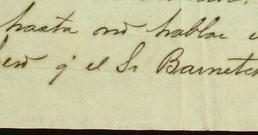 hasta no hablar
q' el Sr Barnetch